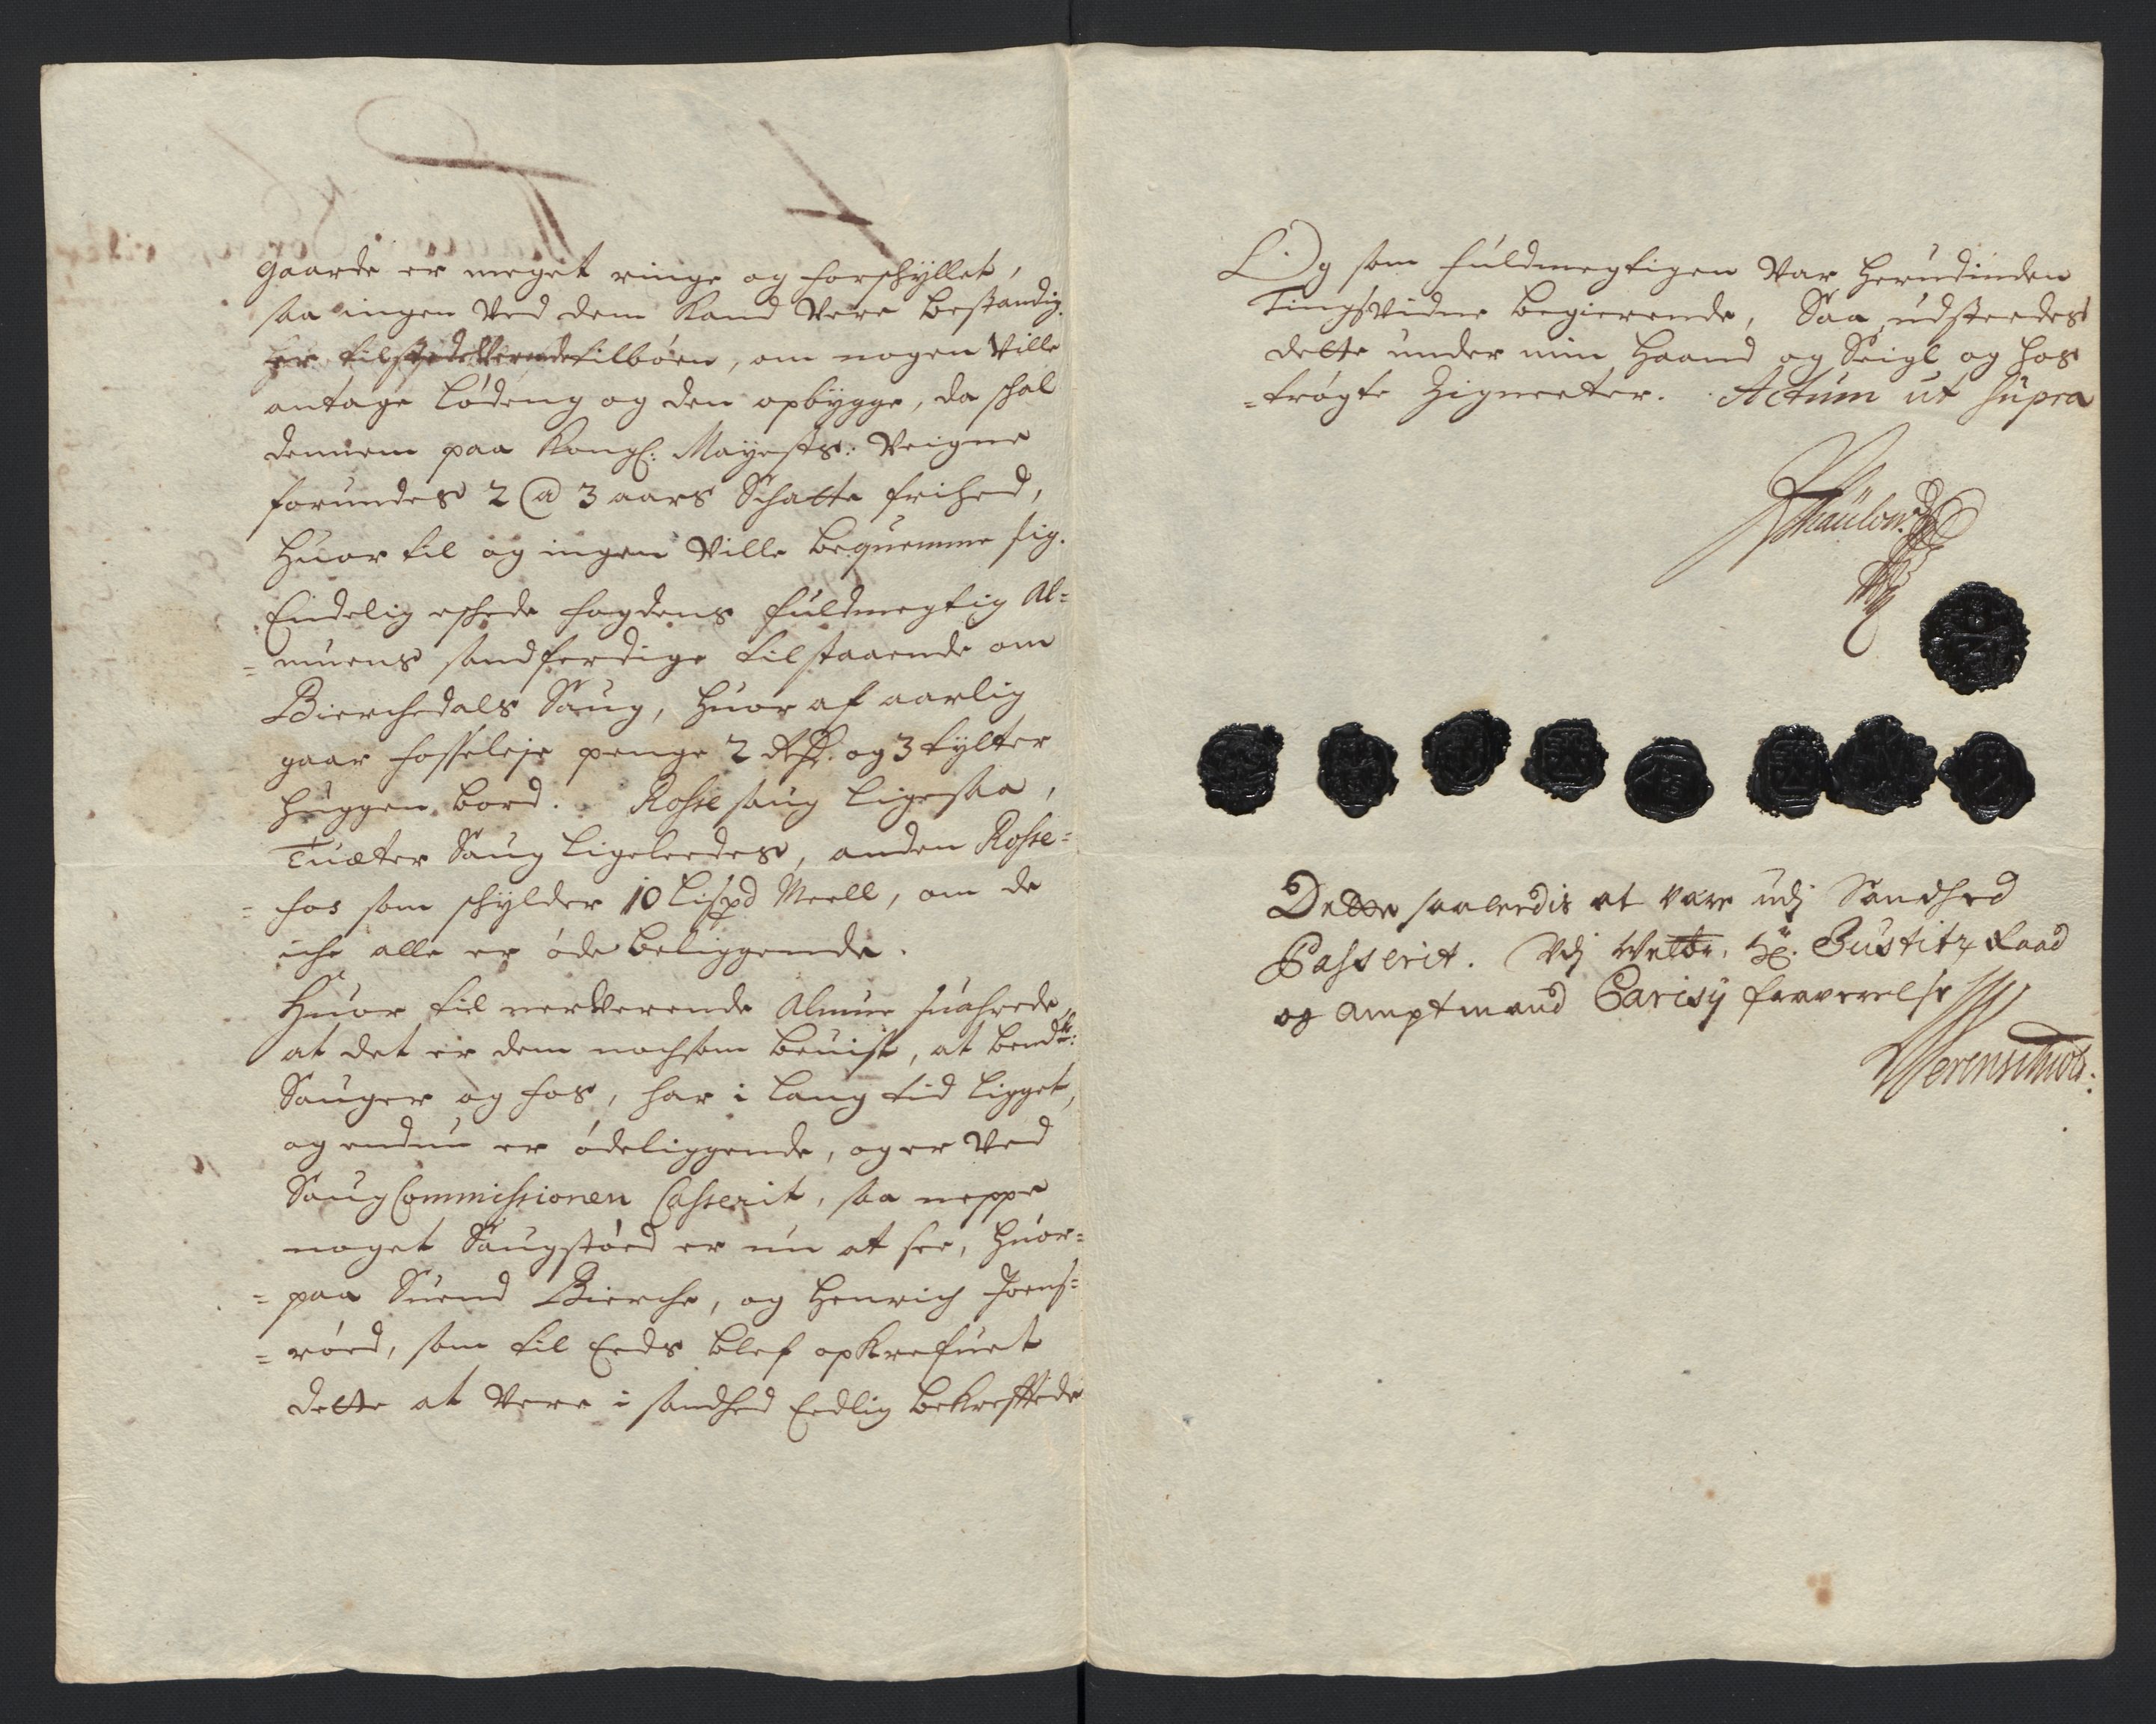 gaarde er meget ringe og forschyllet,
saa ingen Ved dem Kand Vere bestandig.
tilböen, om nogen Ville
antage Lödeng og den opbygge, da schal
dennem paa Kongl: Mayests: Veigne
forundes 2 @ 3 aars Schatte frihed,
Huor til og ingen Ville bequemme sig.
Endelig eschede fogdens fuldmegtig Al=
=muens sandferdige tilstaaende om
Bierchedals Saug, Huor af aarlig
gaar fosseleje penge 2 Rdr. og 3 tylter
huggen bord. Rosse saug ligesaa,
Tuæter Saug ligeleedes, anden Rosse=
=fos som schylder 10 Lispd Meell, om de
iche alle er öde beliggende.
Huor til nerverende Almue suarede
at det er dem nochsom beuist, at bemdte:
Sauger og fos, har i lang tid ligget,
og endnu er ödeliggende, og er Ved
Saug Commissionen Casserit, saa neppe
noget Saugstöed er nu at see, Huor=
=paa Suend Bierche, og Henrich Joens=
=röed, som til Eeds blef opkrefuet
dette at Vere i sandhed Eedlig bekreftede
Og som fuldmegtigen Var herudinden
Tingsvidne begierende, Saa udsteedes
dette under min Haand og Seigl og hos
=trögte Zigneeter. Actum ut supra
Dette saaleedis at vare udj Sandhed
Passerit. Udj Welbr. Hr. Justitz Raad
og Amptmand Parisÿ fraverelse
Werenschiold: